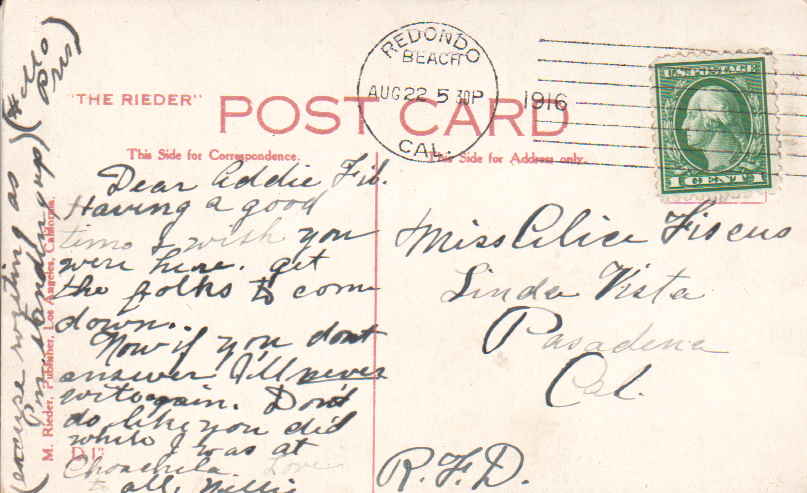 "THE RIEDER"
POST CARD
This Side for Correspondence.
This Side for Address only.
REDONDO
BEACH
AUG 22 5 30P
1916
CAL.
U.S. POSTAGE
Dear Addie Fib.
Having a good
time & wish you
were here. get
the folks to come
down.
Now if you dont
answer I'll never
write again. Don't
do like you did
while I was at
Love
to all, Nellie
Miss Alice Fiscus
Linda Vista
Pasadena
Cal.
R.F.D.
(excuse writing as
I'm standing up)
M. Rieder, Publisher, Los Angeles, California.